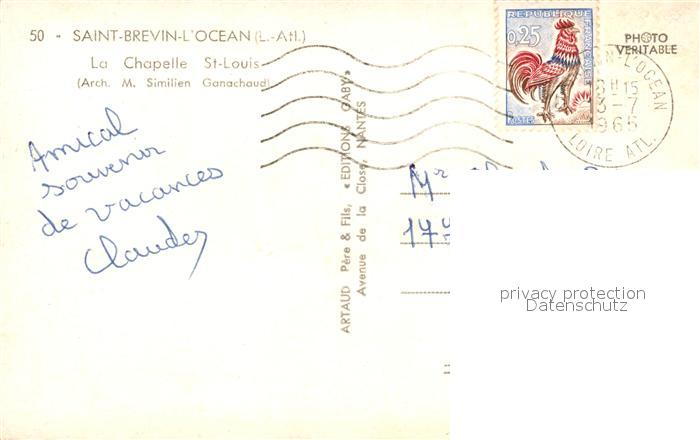 50 - SAINT-BREVIN-L'OCEAN (L.-Atl.)
La Chapelle St-Louis
(Arch. M. Similien Ganachaud)
Amical
souvenir
de vacances
ARTAUD Père & Fils, « EDITIONS GABY »
Avenue de la Close, NANTES
REPUBLIQUE
FRANÇAISE
0,25
POSTES
PHOTO
VERITABLE
N-L'OCEAN
H15
3-7
1965
LOIRE ATL.
Mr
17
privacy protection
Datenschutz